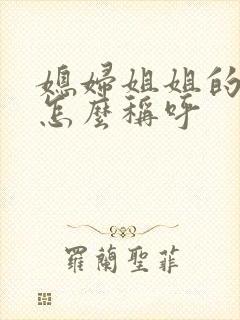 媳婦姐姐的
怎麼稱呼
羅蘭聖菲